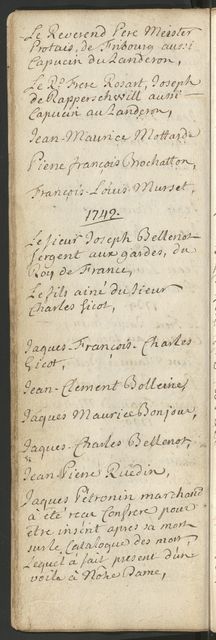 Le Reverend Pere Meister
Protais, de Fribourg aussi
Capucin du Landeron,
Le Rd. Frere Rosart, Joseph
de Rapperschwill aussi
Capucin au Landeron,
Jean-Maurice Mottarde
Pierre françois Brochatton,
François-Louis Murset,
1742.
Le sieur Joseph Bellenot
sergent aux gardes, du
Roy de France,
Le fils ainé du sieur
Charles Gicot,
Jaques-François-Charles
Gicot,
Jean-Clement
Jaques Maurice Bonjour,
Jaques-Charles Bellenot,
Jean Pierre Ruedin,
Jaques Pétronin marchand
a été recu Confrere pour
être inscrit apres sa mort
sur le Catalogue des mors
Lequel a fait present d'un
voile à Notre Dame,